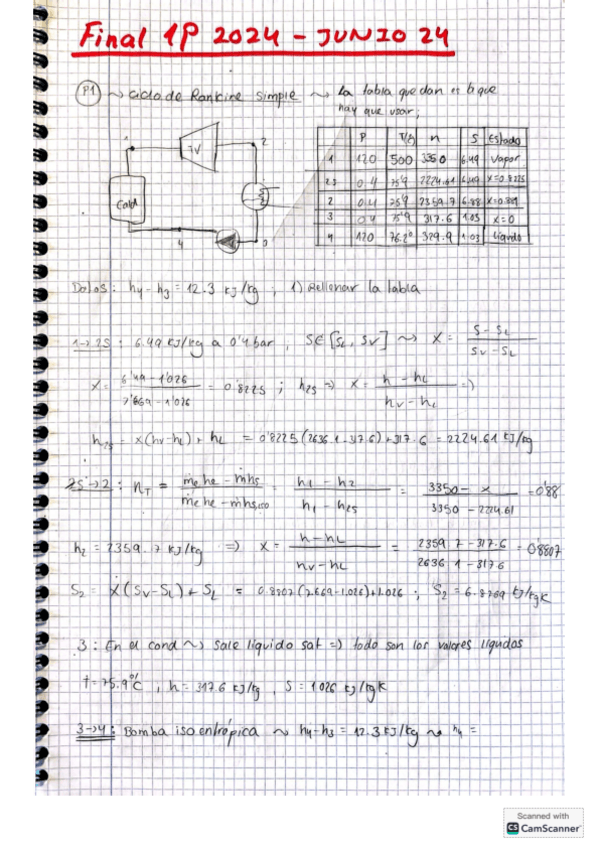 Final 1P 2024 - JUNIO 24
P1 ~> Ciclo de Rankine simple ~> La tabla que dan es la que
hay que usar;
P T(ª) n S Estado
1 120 500 3350 6.49 Vapor
2s 0.4 75'9 2224.61 6.49 x=0.8225
2 0.4 75'9 2359.7 6.88 x=0.881
3 0.4 75'9 317.6 1.03 x=0
4 120 76.2º 329.9 1.03 líquido
1 TV 2
Cald
4 3
Datos: h4 - h3 = 12.3 kJ/kg ; 1) Rellenar la tabla
1->2s : 6.49 kJ/kg a 0'4 bar, S∈[SL, SV] ~> X = S - SL / SV - SL
X = 6'49 - 1'026 / 7'669 - 1'026 = 0'8225 ; h2s => X = h - hL / hV - hL =>
h2s = x(hv-hL) + hL = 0'8225(2636.1 - 317.6) + 317.6 = 2224.61 kJ/kg
2s->2 : nT = ṁe he - ṁhs / ṁe he - ṁhs,iso = h1 - h2 / h1 - h2s = 3350 - x / 3350 - 2224.61 = 0'88
h2 = 2359.7 kJ/kg => X = h - hL / hV - hL = 2359.7 - 317.6 / 2636.1 - 317.6 = 0'8807
S2 = X(SV - SL) + SL = 0.8807(7.669 - 1.026) + 1.026 ; S2 = 6.8769 kJ/kgK
3 : En el cond ~> sale líquido sat => todo son los valores líquidos
t = 75.9ºC, h = 317.6 kJ/kg, S = 1.026 kJ/kgK
3->4 : Bomba isoentrópica ~> h4 - h3 = 12.3 kJ/kg ~> h4 =
Scanned with
CS CamScanner